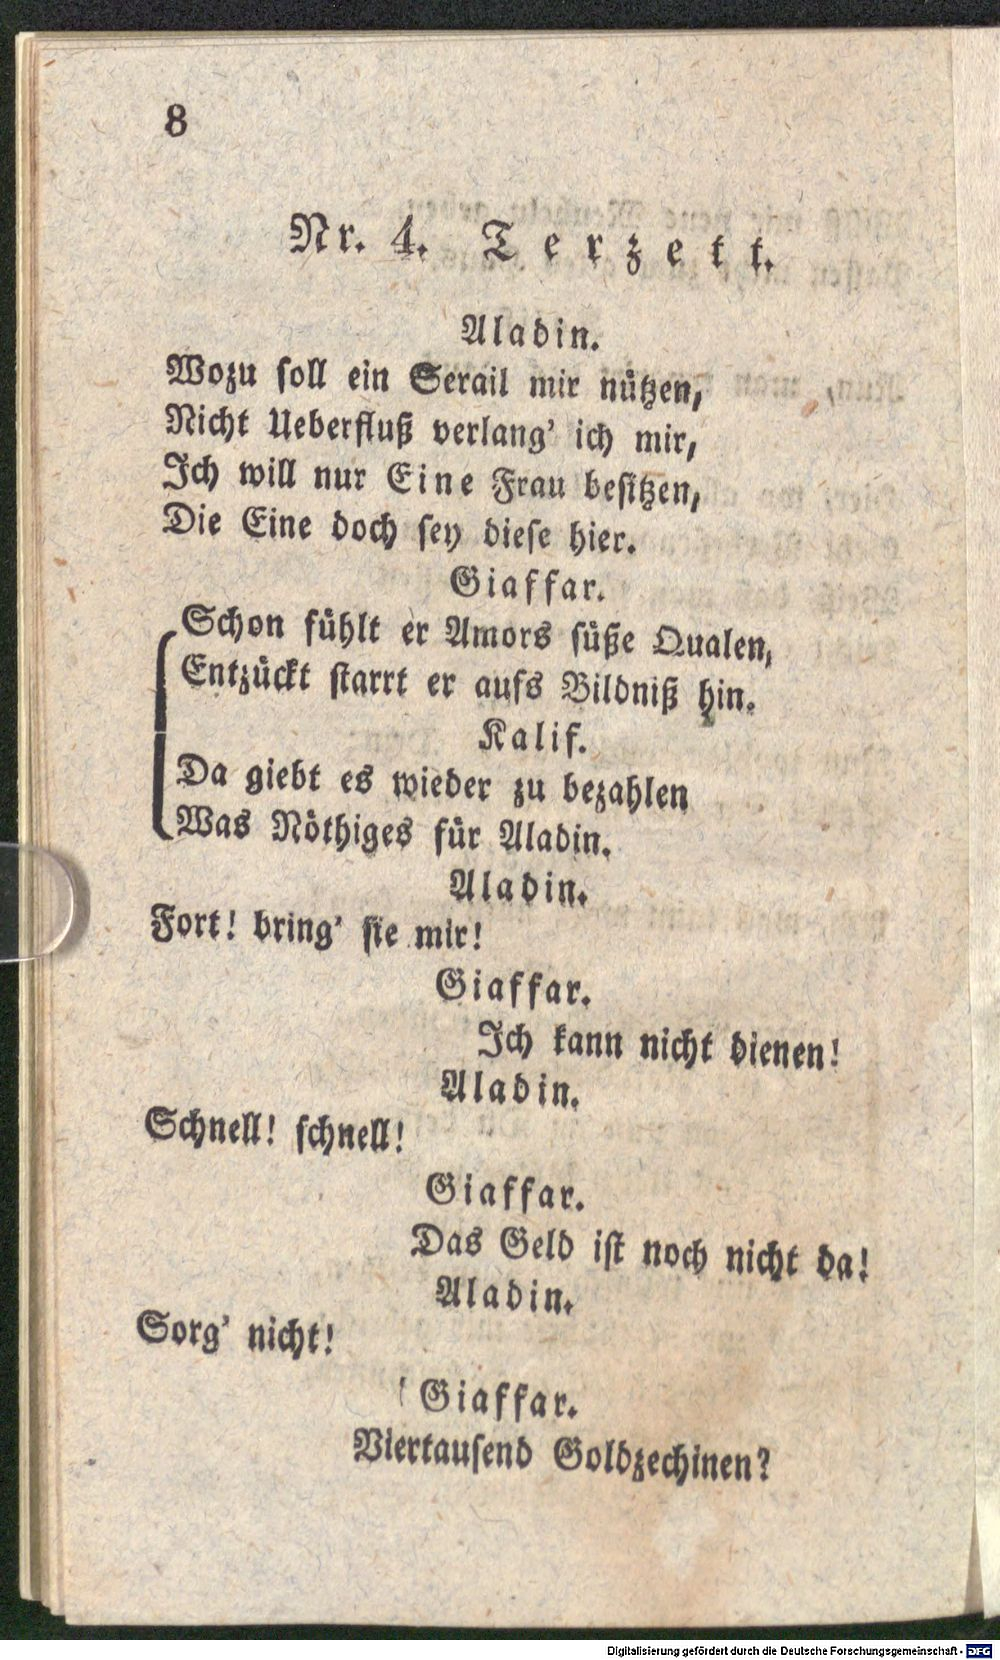 8
Nr. 4. Terzett.
Aladin.
Wozu soll ein Serail mir nützen,
Nicht Ueberfluß verlang' ich mir,
Ich will nur Eine Frau besitzen,
Die Eine doch sey diese hier.
Giaffar.
Schon fühlt er Amors süße Qualen,
Entzückt starrt er aufs Bildniß hin.
Kalif.
Da giebt es wieder zu bezahlen
Was Nöthiges für Aladin.
Aladin.
Fort! bring' sie mir!
Giaffar.
Ich kann nicht dienen!
Aladin.
Schnell! schnell!
Giaffar.
Das Geld ist noch nicht da!
Aladin.
Sorg' nicht!
Giaffar.
Viertausend Goldzechinen?
Digitalisierung gefördert durch die Deutsche Forschungsgemeinschaft - DFG